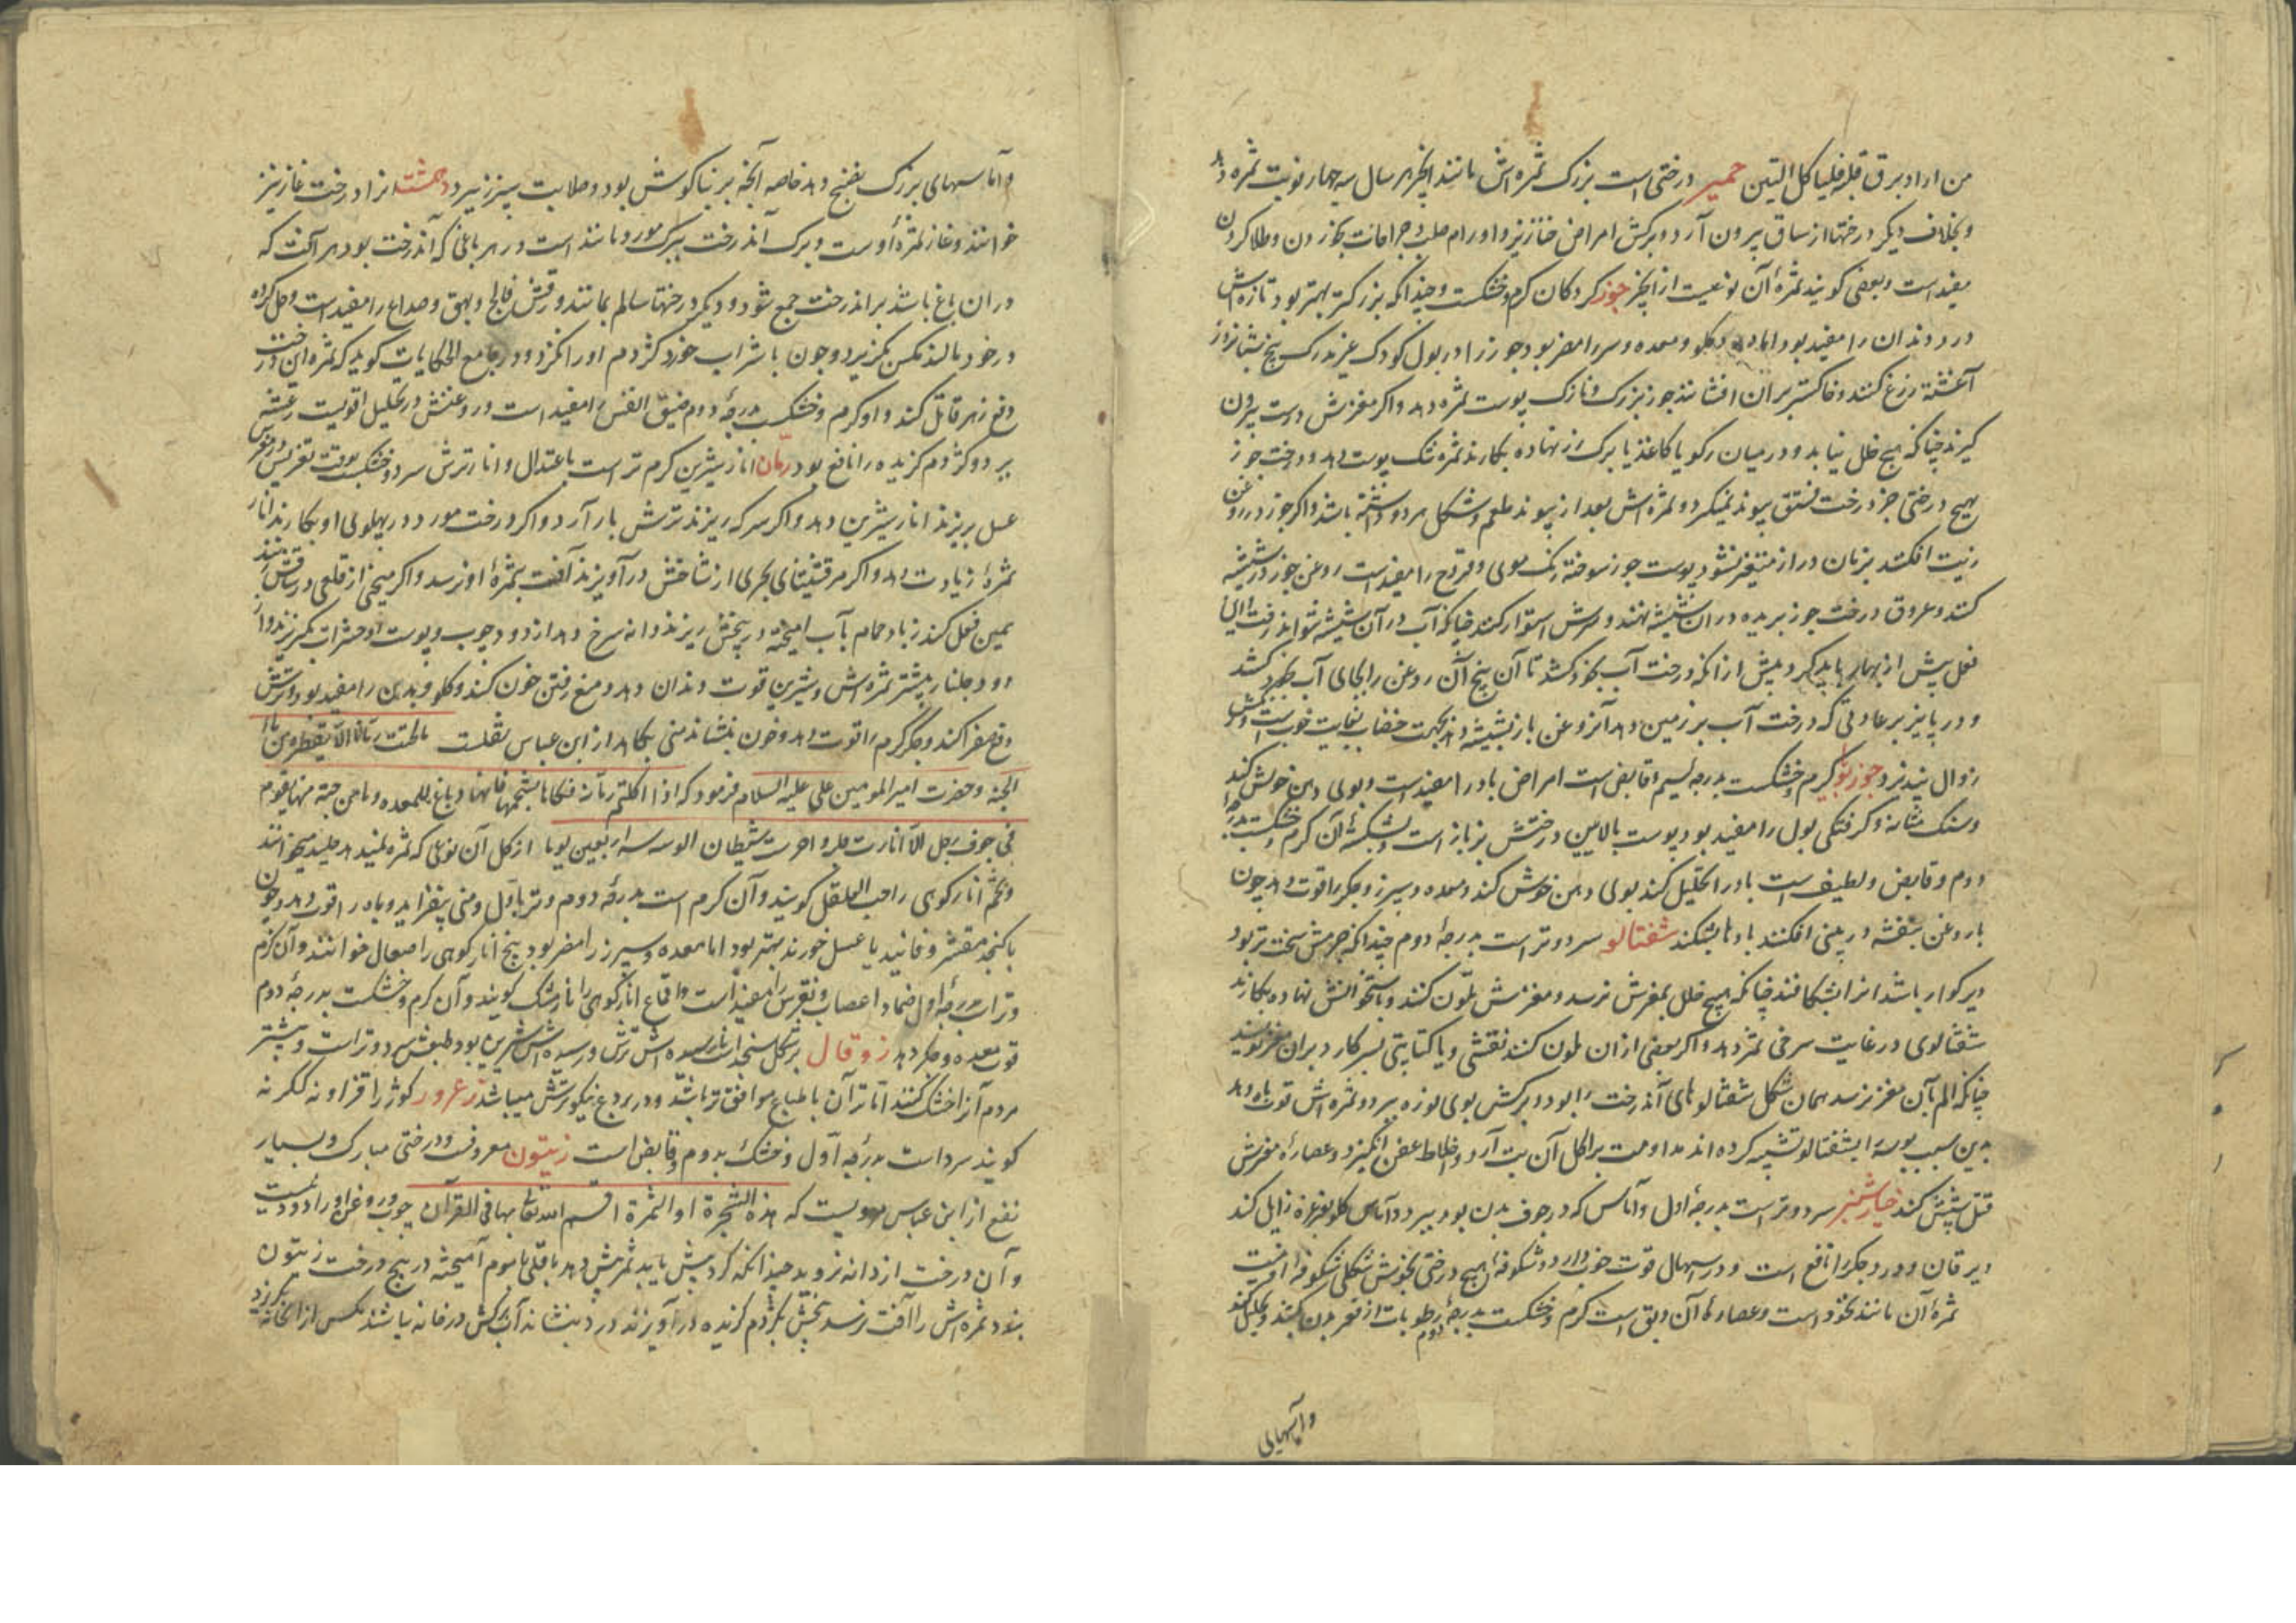 من اراد برق قلبه فلیاکل التین حمیر درختی است بزرک ثمره‌اش مانند انجیر هر سال سه چهار نوبت ثمره دهد
و بخلاف دیکر درختها از ساق بیرون آرد و برکش امراض خنازیر و اورام صلب و جراحات بخوردن و طلا کردن
مفید است و بعضی کویند ثمرهٔ آن نوعیست از انجیر جوز کردکان کرم و خشکست و چندانکه بزرکتر بهتر بود تازه‌اش
درد دندان را مفید بود اما و کلو و معده و سر را مضر بود جوز را در بول کودک غیر مدرک پنج شبانروز
آغشته زرع کنند و خاکستر بر آن افشانند جوز بزرک و نازک پوست ثمره دهد و اکر مغزش درست بیرون
کیرند چنانکه هیچ خلل نیابد و در میان رکو یا کاغذ یا برک رز نهاده بکارند ثمره تنک پوست دهد و درخت جوز
بهیچ درختی جز درخت فستق پیوند نمیکرد و ثمره‌اش بعد از پیوند طعم و شکل هر دو داشته باشد و اکر جوز در روغن
زیت افکنند بزمان دراز متغیر نشود پوست جوز سوخته رنک موی و قروح را مفید است روغن جوز در شیشه
کنند و عروق درخت جوز بریده در ان شیشه نهند و سرش استوار کنند چنانکه آب در آن شیشه نتواند رفت این
فعل پیش از بهار باید کرد پیش از انکه درخت آب بخود کشد تا آن بیخ آن روغن را بجای آب بخود کشد
و در پاییز بر عادتی که درخت آب بر زمین دهد آنروغن باز بشیشه دهد بجهت خضاب بغایت خوبست و نقش
زوال نپذیرد جوز بوّا کرم و خشکست بدرجه سیم قابض است امراض بادرا مفید است و بوی دهن خوش کند
و سنک مثانه و کرفتکی بول را مفید بود پوست بالایین درختش بزباز است و بشکنهٔ آن کرم و خشکست بدرجهٔ
دوم و قابض و لطیف است بادرا تحلیل کند بوی دهن خوش کند و معده و سپرز و جکر را قوت دهد چون
با روغن بنفشه در بینی افکنند بادها بشکند شفتالو سرد و تر است بدرجهٔ دوم چندانکه جرمش سخت‌تر بود
دیر کوار باشد انرا بشکافند چنانکه هیچ خلل بمغزش نرسد و مغزش ملّون کنند و باستخوانش نهاده بکارند
شفتالوی در غایت سرخی ثمر دهد و اکر بعضی ازان ملون کنند نقشی و یا کتابتی بسر کارد بر ان مغز نویسند
چنانکه الم بآن مغز نرسد همان شکل شفتالوهای آندرخت را بود و برکش بوی نوزه ببرد و ثمره‌اش قوت باه دهد
بدین سبب بوسه را بشفتالو تشبیه کرده‌اند مداومت بر اکل آن تب آرد و اخلاط عفن انکیزد و عصارهٔ مغزش
قتل شپش کند خیارشنبر سرد و تر است بدرجهٔ اول و آماس که در جوف بدن بود ببرد و آماس کلو بغرغره زایل کند
و یرقان و درد جکر را نافع است و در اسهال قوت خوب دارد و شکوفهٔ هیچ درختی بخوش شکلی شکوفهٔ او نیست
ثمرهٔ آن مانند نخود است و عصارهٔ آن دبق است کرم و خشکست بدرجهٔ دوم رطوبات از قعر بدن بکشد و تحلیل کند
و آماسهای
و آماسهای بزرک بنضج دهد خاصه آنچه بر بناکوش بود و صلابت سپرز ببرد دهمشت انرا درخت غار نیز
خوانند و غار ثمرهٔ اوست و برک آندرخت ببرک مورد مانند است و در هر باغی که آندرخت بود هر آفت که
در ان باغ باشد بر اندرخت جمع شود و دیکر درختها سالم بمانند ورقش فالج و بهق و صداع را مفید است و حل کرده
در خود مالند مکس بکریزد و چون با شراب خورد کژدم او را نکزد و در جامع الحکایات کوید که ثمره این درخت
دفع زهر قاتل کند و او کرم و خشک بدرجهٔ دوم ضیق النفس را مفید است و روغنش در تحلیل اقویست رعشه
ببرد و کژدم کزیده را نافع بود رمّان انار شیرین کرم تر است باعتدال و انار ترش سرد و خشک بوقت غریس در مغرس
عسل بریزند انار شیرین دهد و اکر سرکه ریزند ترش بار آرد و اکر درخت مورد در پهلوی او بکارند انار
ثمرهٔ زیادت دهد و اکر مرقشیثای بحری از شاخش درآویزند آفت بثمرهٔ او نرسد و اکر میخی از قلعی در ساقش زنند
همین فعل کند زباد حمام بآب آمیخته در بیخش ریزند دانه سرخ دهد از دود چوب و پوست او حشرات بکریزند و از
دود جلنار بیشتر ثمره‌اش و شیرین قوت دندان دهد و منع رفتن خون کند و کلو و بدن را مفید بود و ترش
دفع صفرا کند و جکر کرم را قوت دهد و خون بنشاند منی بکاهد از ابن عباس نقلست مالحقت رمّانة الّا بقطرة من ماء
الجنة و حضرت امیر المومنین علی علیه السلام فرمود که اذا اکلتم رمّانة فکلوها بشحمها فانها دباغ للمعده و ما من حبة منها تقوم
فی جوف رجل الّا انارت قلبه و اخرست شیطان الوسوسه اربعین یوما از کل آن نوعی که ثمره نمیدهد جلبد میخوانند
و تخم انار کوهی را حب القلقل کویند و آن کرم است بدرجهٔ دوم و تر باوّل و منی بیفزاید و باه را قوت دهد و چون
با کنجد مقشر و فانید یا عسل خورند بهتر بود اما معده و سپرز را مضر بود بیخ انار کوهی را صعال خوانند و آن کرم
و تر است بدرجهٔ اول ضماد اعصاب و نقرس را مفید است و اقماع انار کوهی را نارمشک کویند و آن کرم و خشکست بدرجهٔ دوم
قوت معده و جکر دهد زوقال بر شکل سنجد است نارسیده‌اش ترش و رسیده‌اش شیرین بود طبعش سرد و تر است و بیشتر
مردم آنرا خشک کنند امّا تر آن با طباع موافق‌تر باشد و در بردع نیکو ترشش میباشد زعرور کوژ را قزا و نه کنکرنه
کویند سرد است بدرجهٔ اول و خشک بدوم و قابض است زیتون معروفست و درختی مبارک و بسیار
نفع از ابن عباس مرویست که هذه الشجرة او الثمرة اقسم الله تعالی بها فی القرآن چوب و روغن او را دود نیست
و آن درخت از دانه نروید چندانکه کرد بیش یابد ثمر بیش دهد باقلی با موم آمیخته در بیخ درخت زیتون
بنهند ثمره‌اش را آفت نرسد بیخش بکژدم کزیده درآویزند درد بنشاند آب برکش در خانه بپاشند مکس از انخانه بکریزد